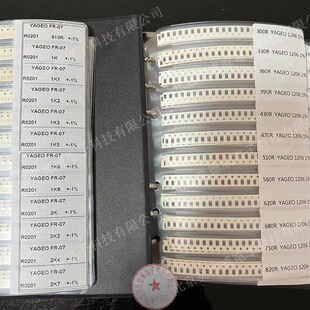 YAGEO FR-07
R0201 910R +-1%
YAGEO FR-07
R0201 1K +-1%
YAGEO FR-07
R0201 1K1 +-1%
YAGEO FR-07
R0201 1K2 +-1%
YAGEO FR-07
R0201 1K3 +-1%
YAGEO FR-07
R0201 1K5 +-1%
YAGEO FR-07
R0201 1K6 +-1%
YAGEO FR-07
R0201 1K8 +-1%
YAGEO FR-07
R0201 2K +-1%
YAGEO FR-07
R0201 2K2 +-1%
YAGEO FR-07
R0201 2K4 +-1%
YAGEO FR-07
R0201 2K7 +-1%
300R YAGEO 1206 1%
330R YAGEO 1206 1%
360R YAGEO 1206 1%
390R YAGEO 1206 1%
430R YAGEO 1206 1%
470R YAGEO 1206 1%
510R YAGEO 1206 1%
560R YAGEO 1206 1%
620R YAGEO 1206 1%
680R YAGEO 1206 1%
750R YAGEO 1206 1%
820R YAGEO 1206 1%